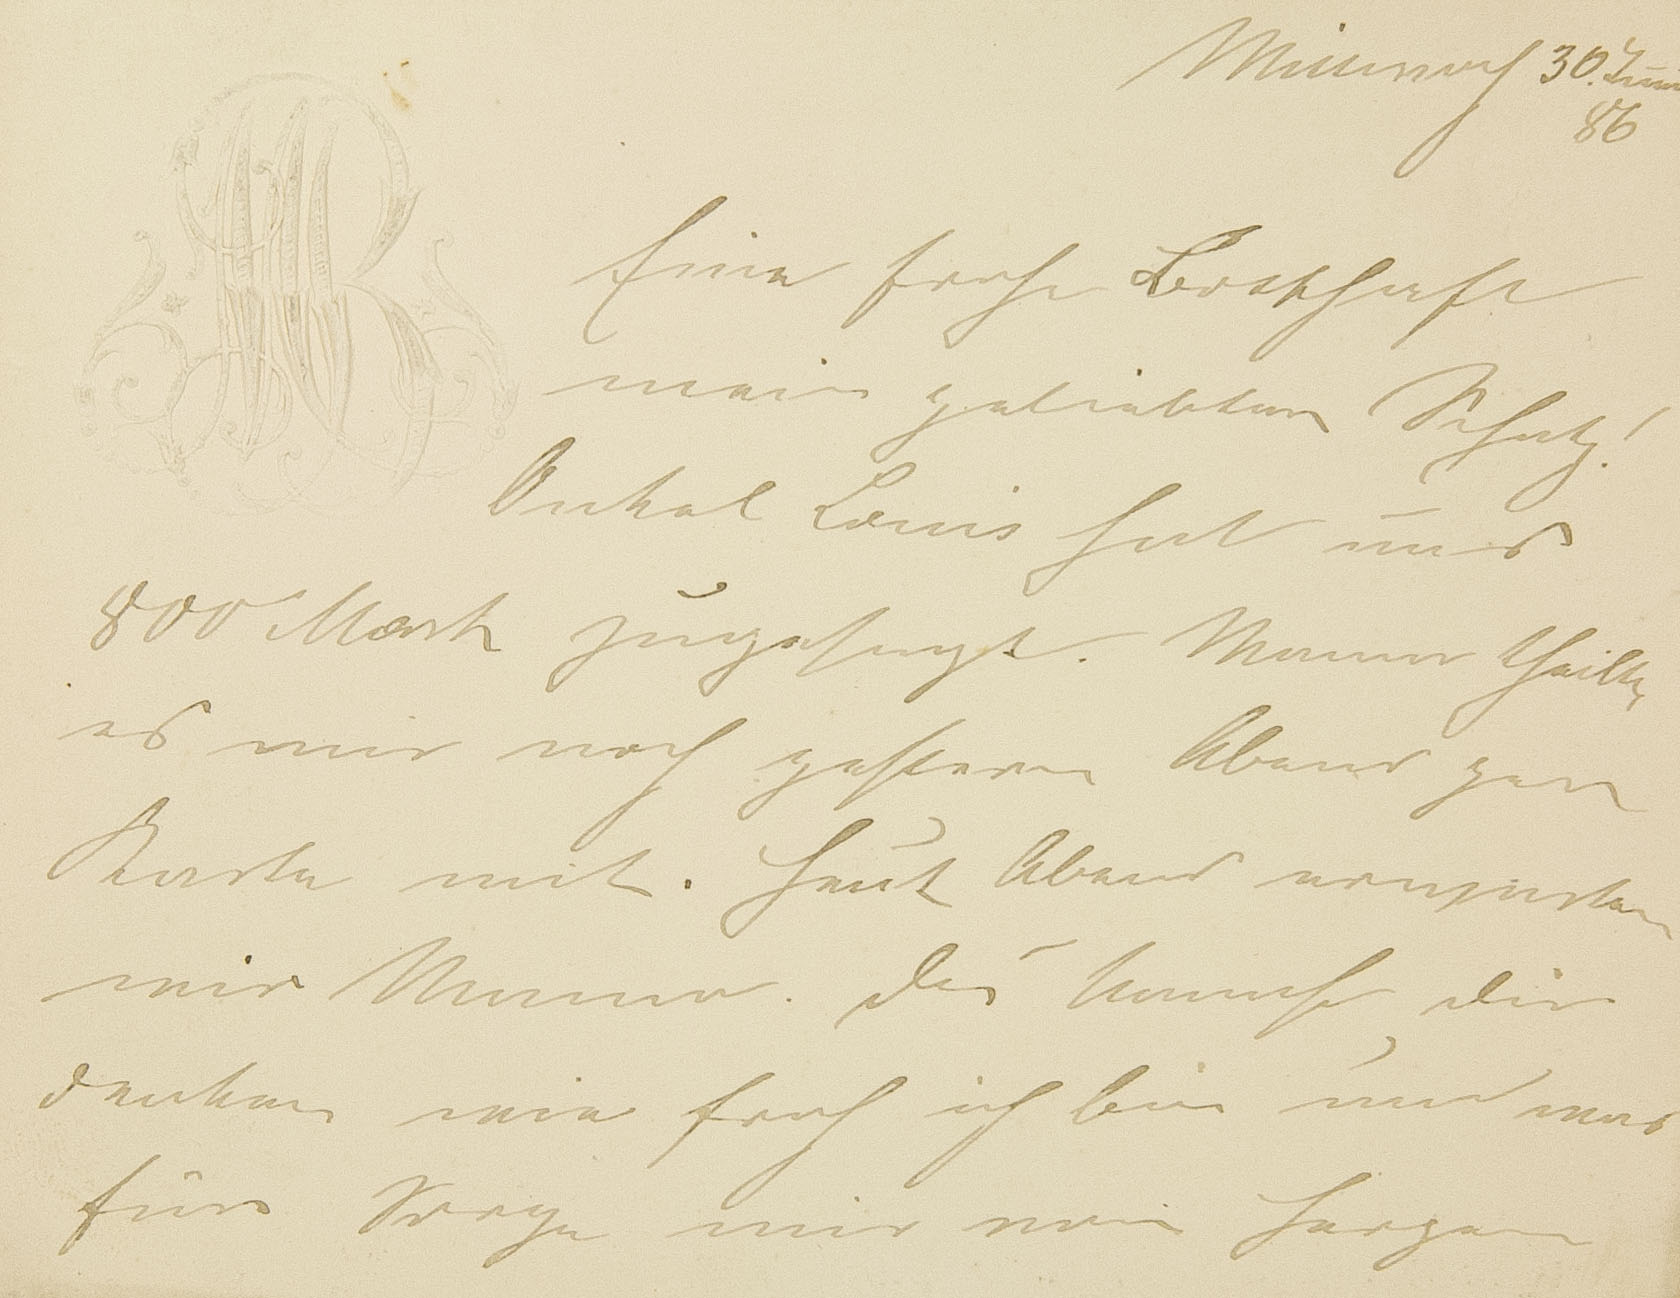 Mittwoch 30. Juni
86
Eine frohe Botschaft
mein geliebter Schatz!
Onkel Louis hat uns
800 Mark zugesagt. Mama theilte
es mir noch gestern Abend per
Karte mit. Heut Abend erwarten
wir Mama. Du kannst dir
denken wie froh ich bin und was
für Sorge mir vom Herzen